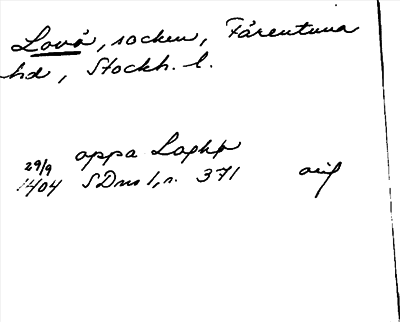 Lovö, socken, Färentuna
hd, Stockh. l.
oppa Loghø
29/9
1404 SDns 1, n. 371 orig